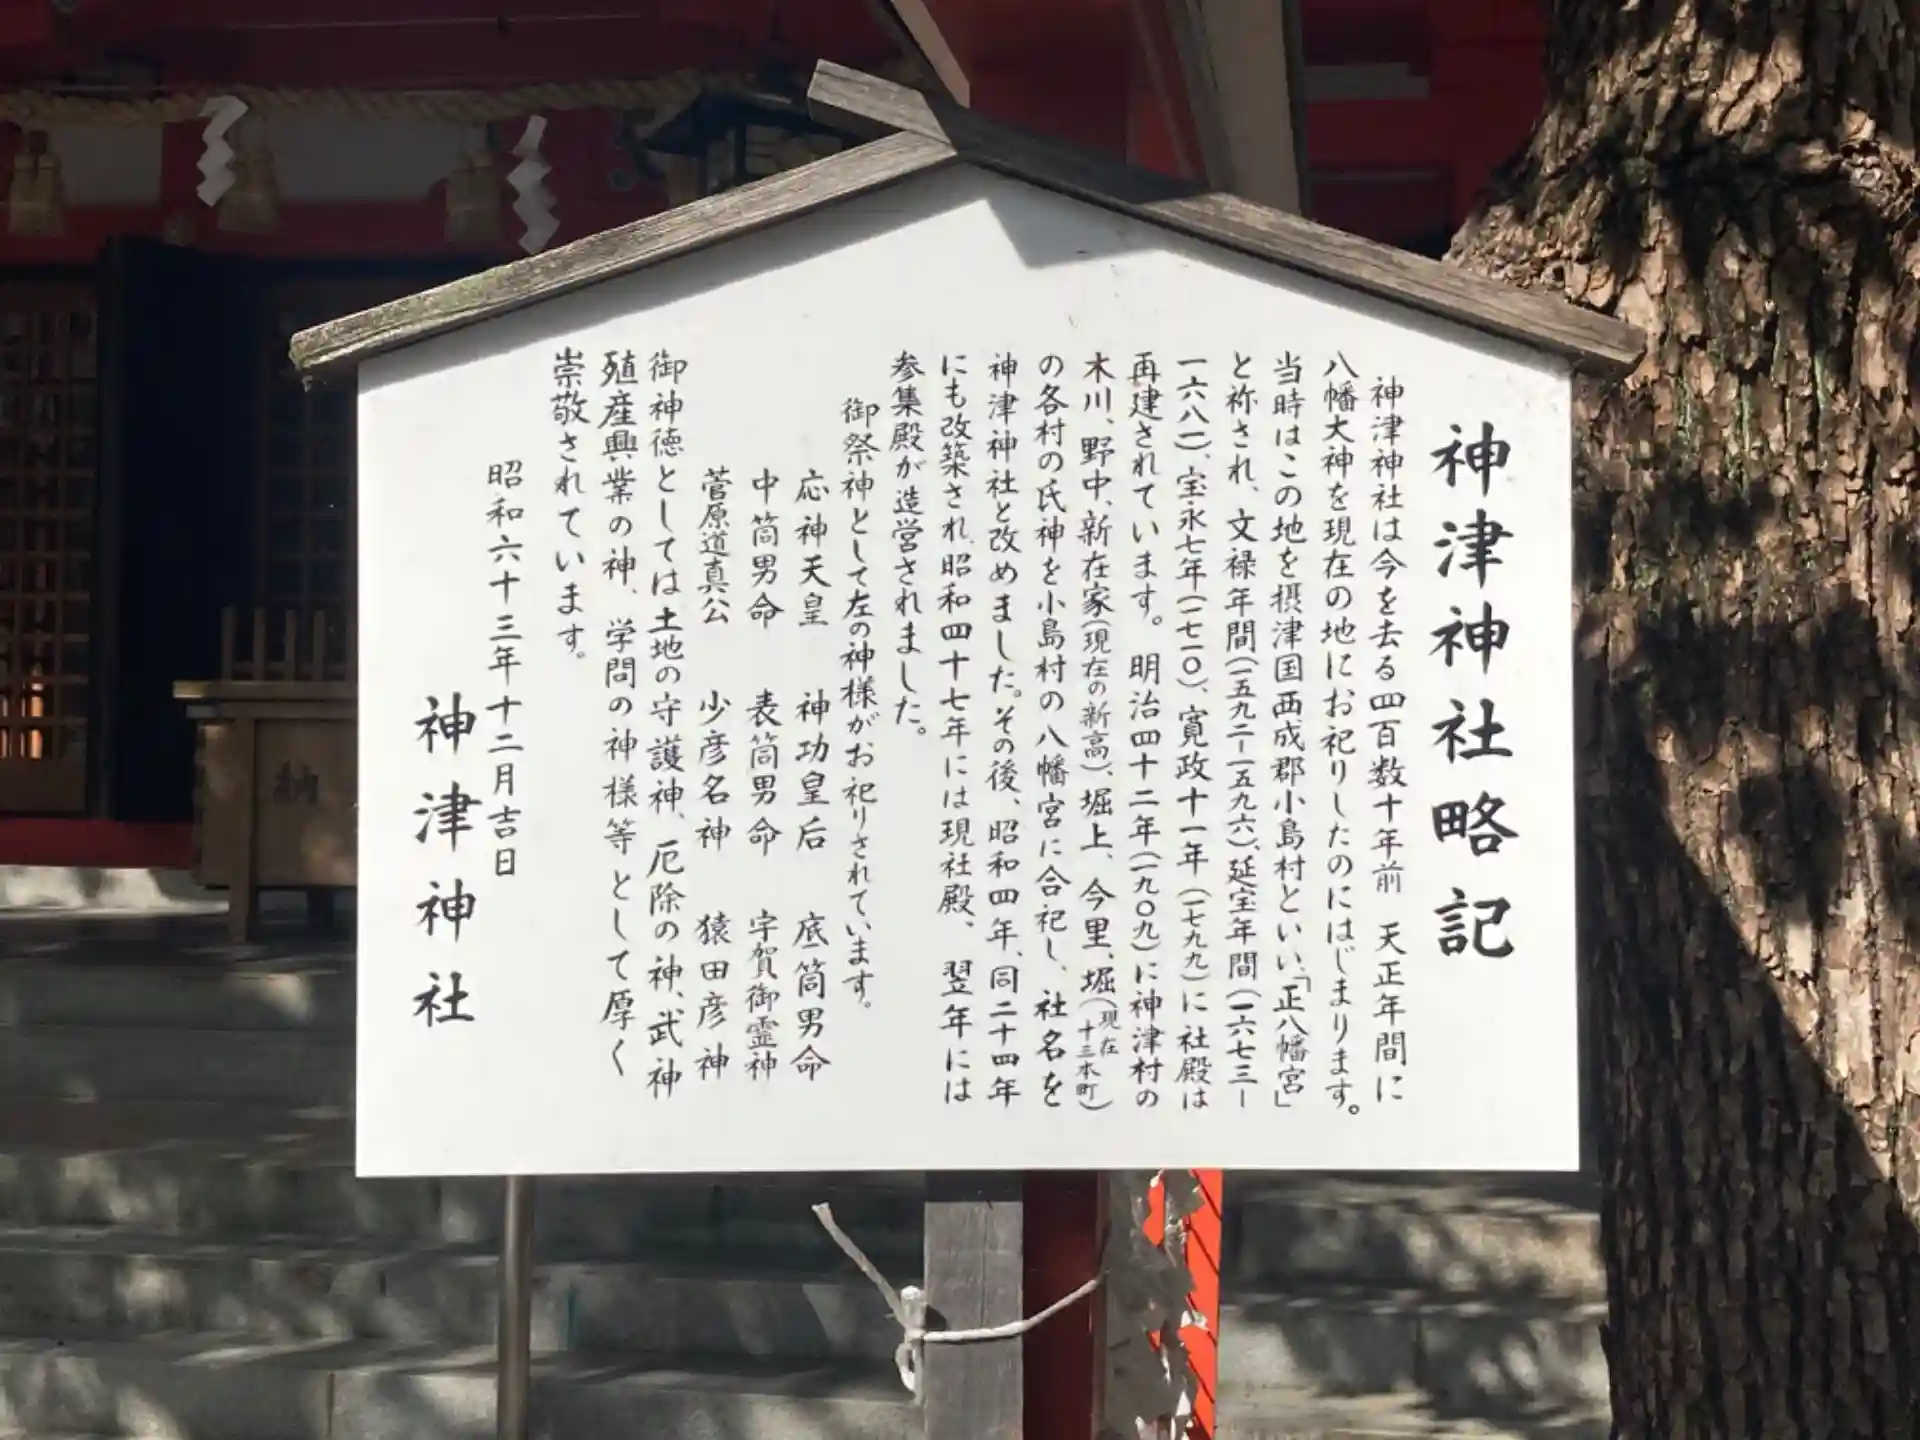 神津神社略記
神津神社は今を去る四百数十年前 天正年間に
八幡大神を現在の地にお祀りしたのにはじまります。
当時はこの地を摂津国西成郡小島村といい、「正八幡宮」
と祢され、文禄年間(一五九二ー一五九六)、延宝年間(一六七三ー
一六八一)、宝永七年(一七一〇)、寛政十一年(一七九九)に社殿は
再建されています。明治四十二年(一九〇九)に神津村の
木川、野中、新在家(現在の新高)、堀上、今里、堀(現在十三本町)
の各村の氏神を小島村の八幡宮に合祀し、社名を
神津神社と改めました。その後、昭和四年、同二十四年
にも改築され、昭和四十七年には現社殿、翌年には
参集殿が造営されました。
御祭神として左の神様がお祀りされています。
応神天皇 神功皇后 底筒男命
中筒男命 表筒男命 宇賀御霊神
菅原道真公 少彦名神 猿田彦神
御神徳としては土地の守護神、厄除の神、武神
殖産興業の神、学問の神様等として厚く
崇敬されています。
昭和六十三年十二月吉日
神津神社
納